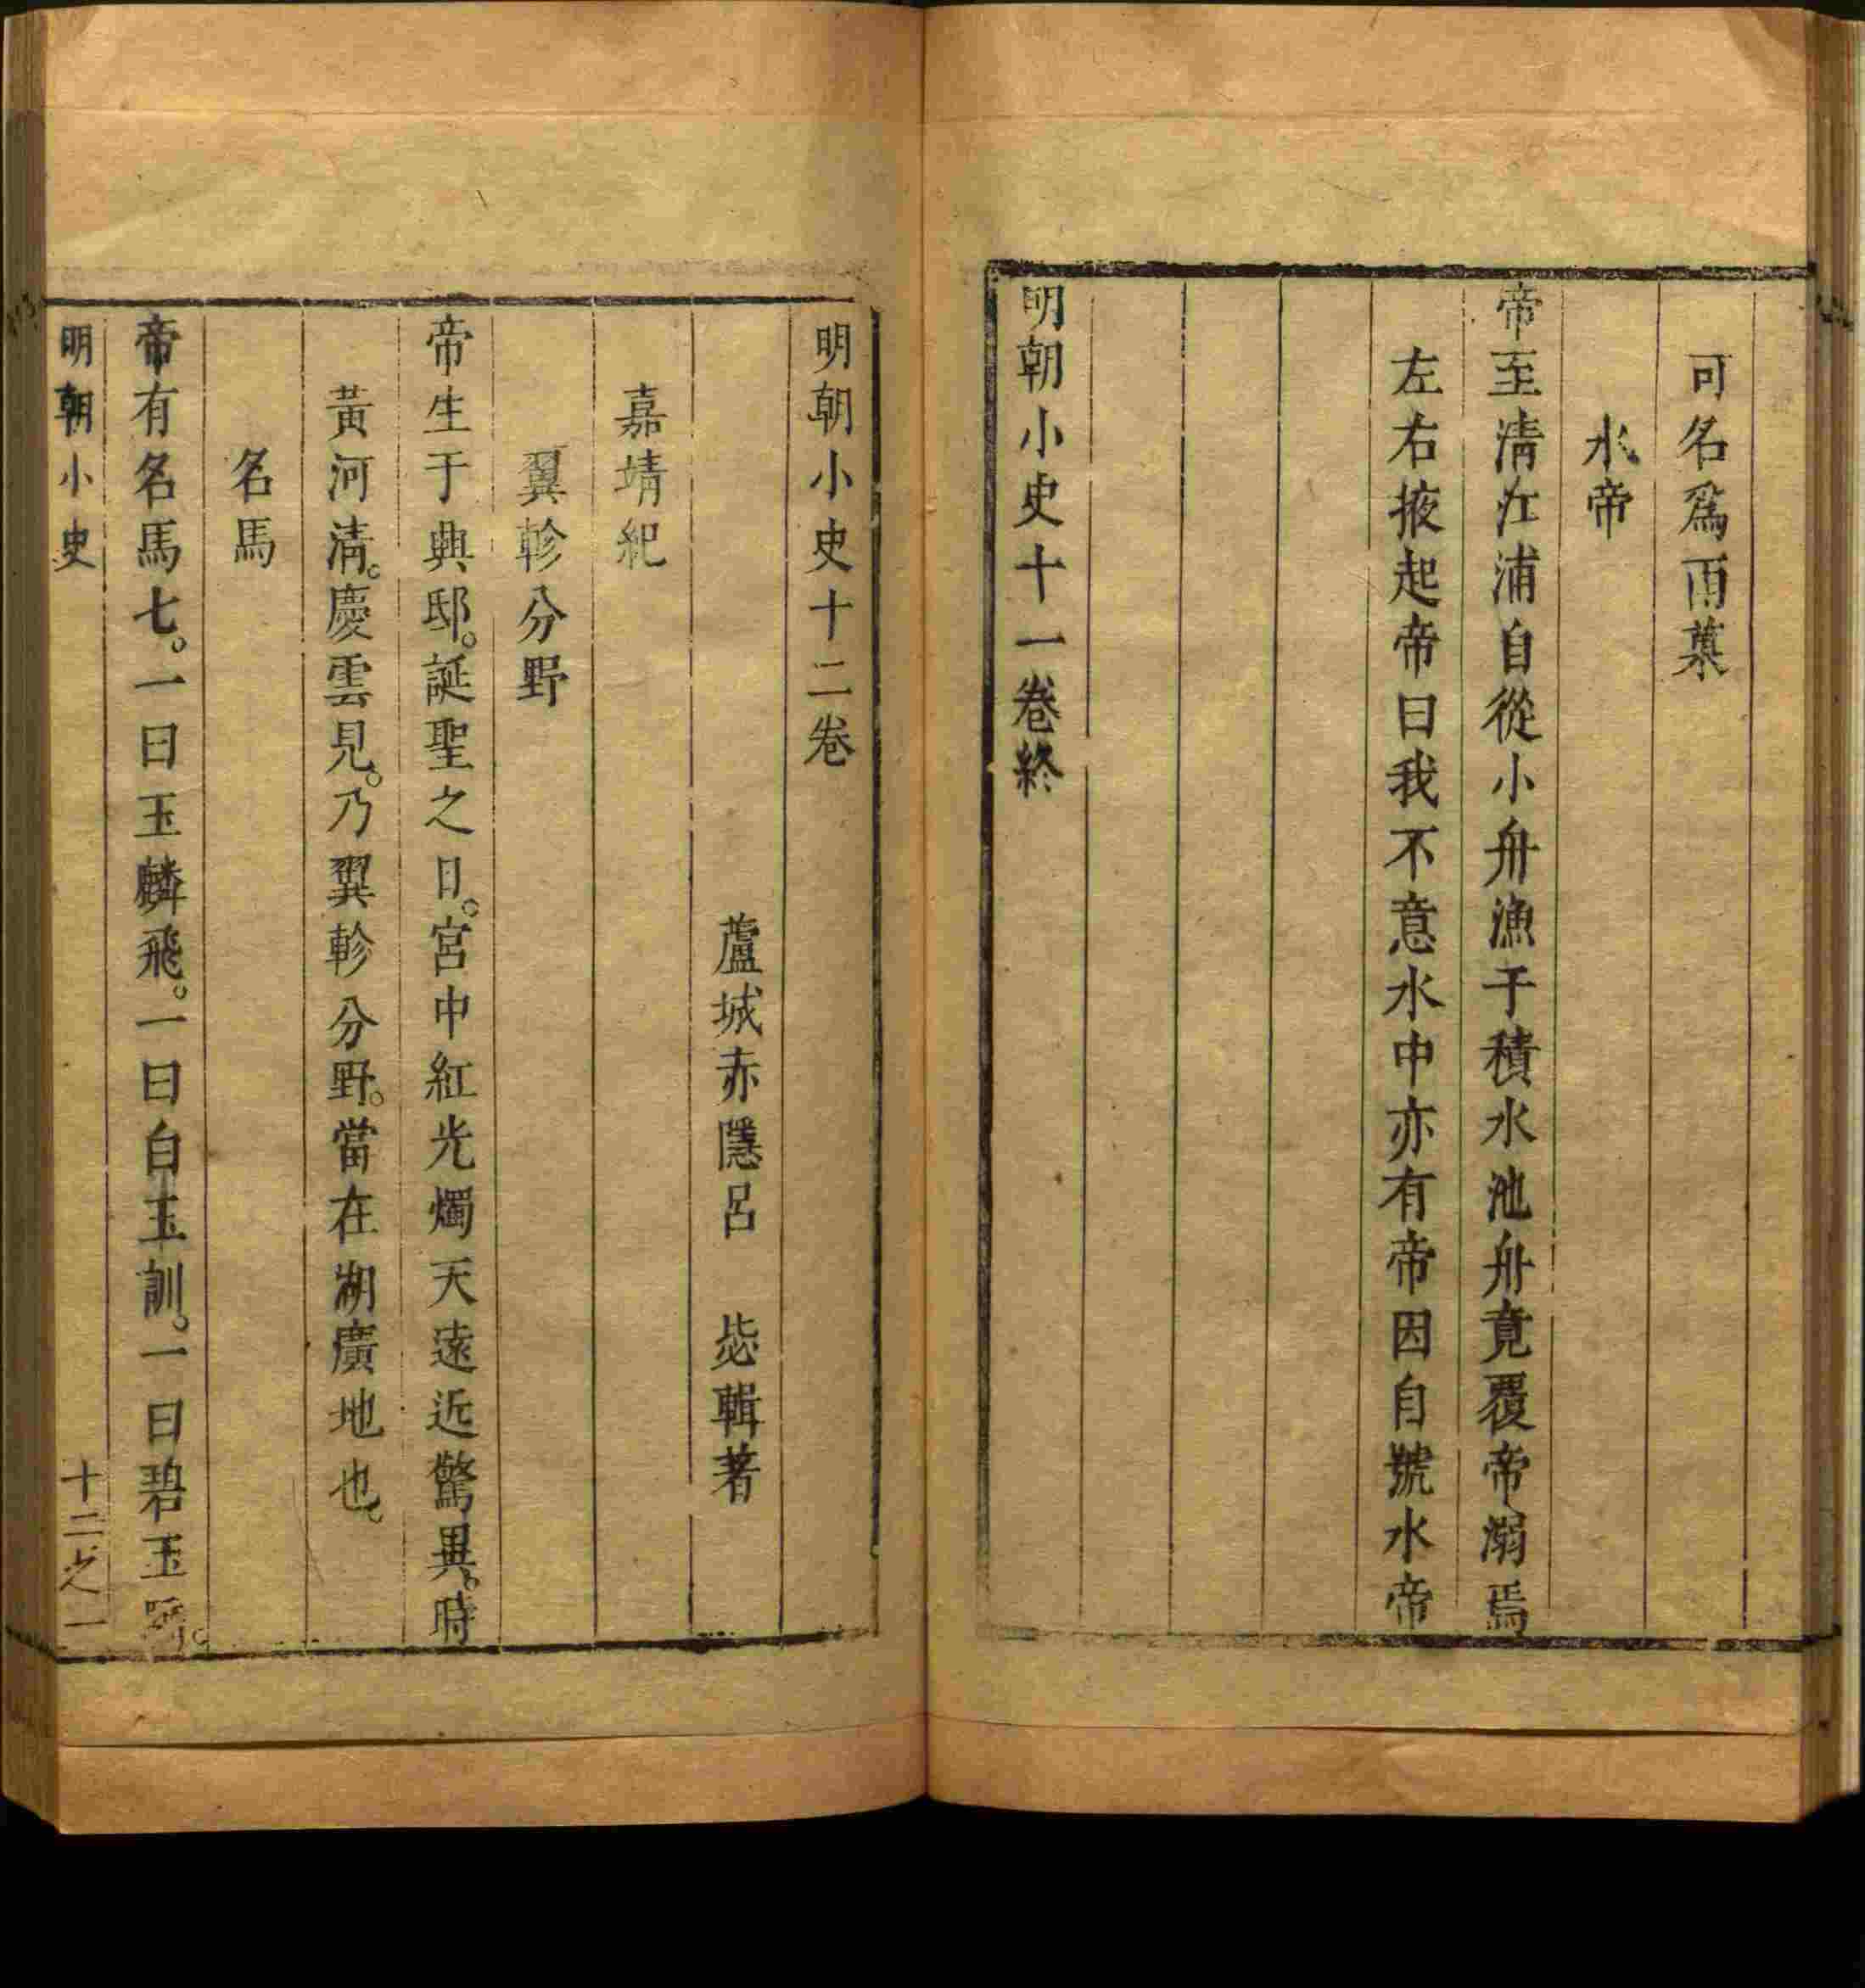 可名爲雨菓
水帝
帝至清江浦自從小舟漁于積水池舟竟覆帝溺焉
左右掖起帝曰我不意水中亦有帝因自號水帝
明朝小史十一卷終
明朝小史十二卷
蘆城赤隱呂　毖輯著
嘉靖紀
翼軫分野
帝生于興邸。誕聖之日。宮中紅光燭天遠近驚異。時
黃河清。慶雲見。乃翼軫分野。當在湖廣地也。
名馬
帝有名馬七。一曰玉麟飛。一曰白玉馴。一曰碧玉
明朝小史
十二之一